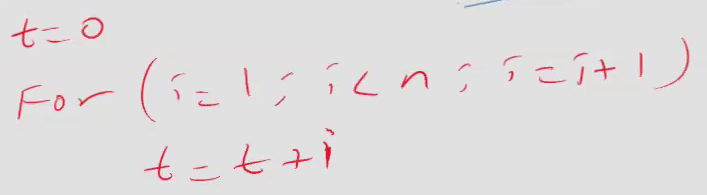 t=0
For (i=1; i<n; i=i+1)
t=t+i